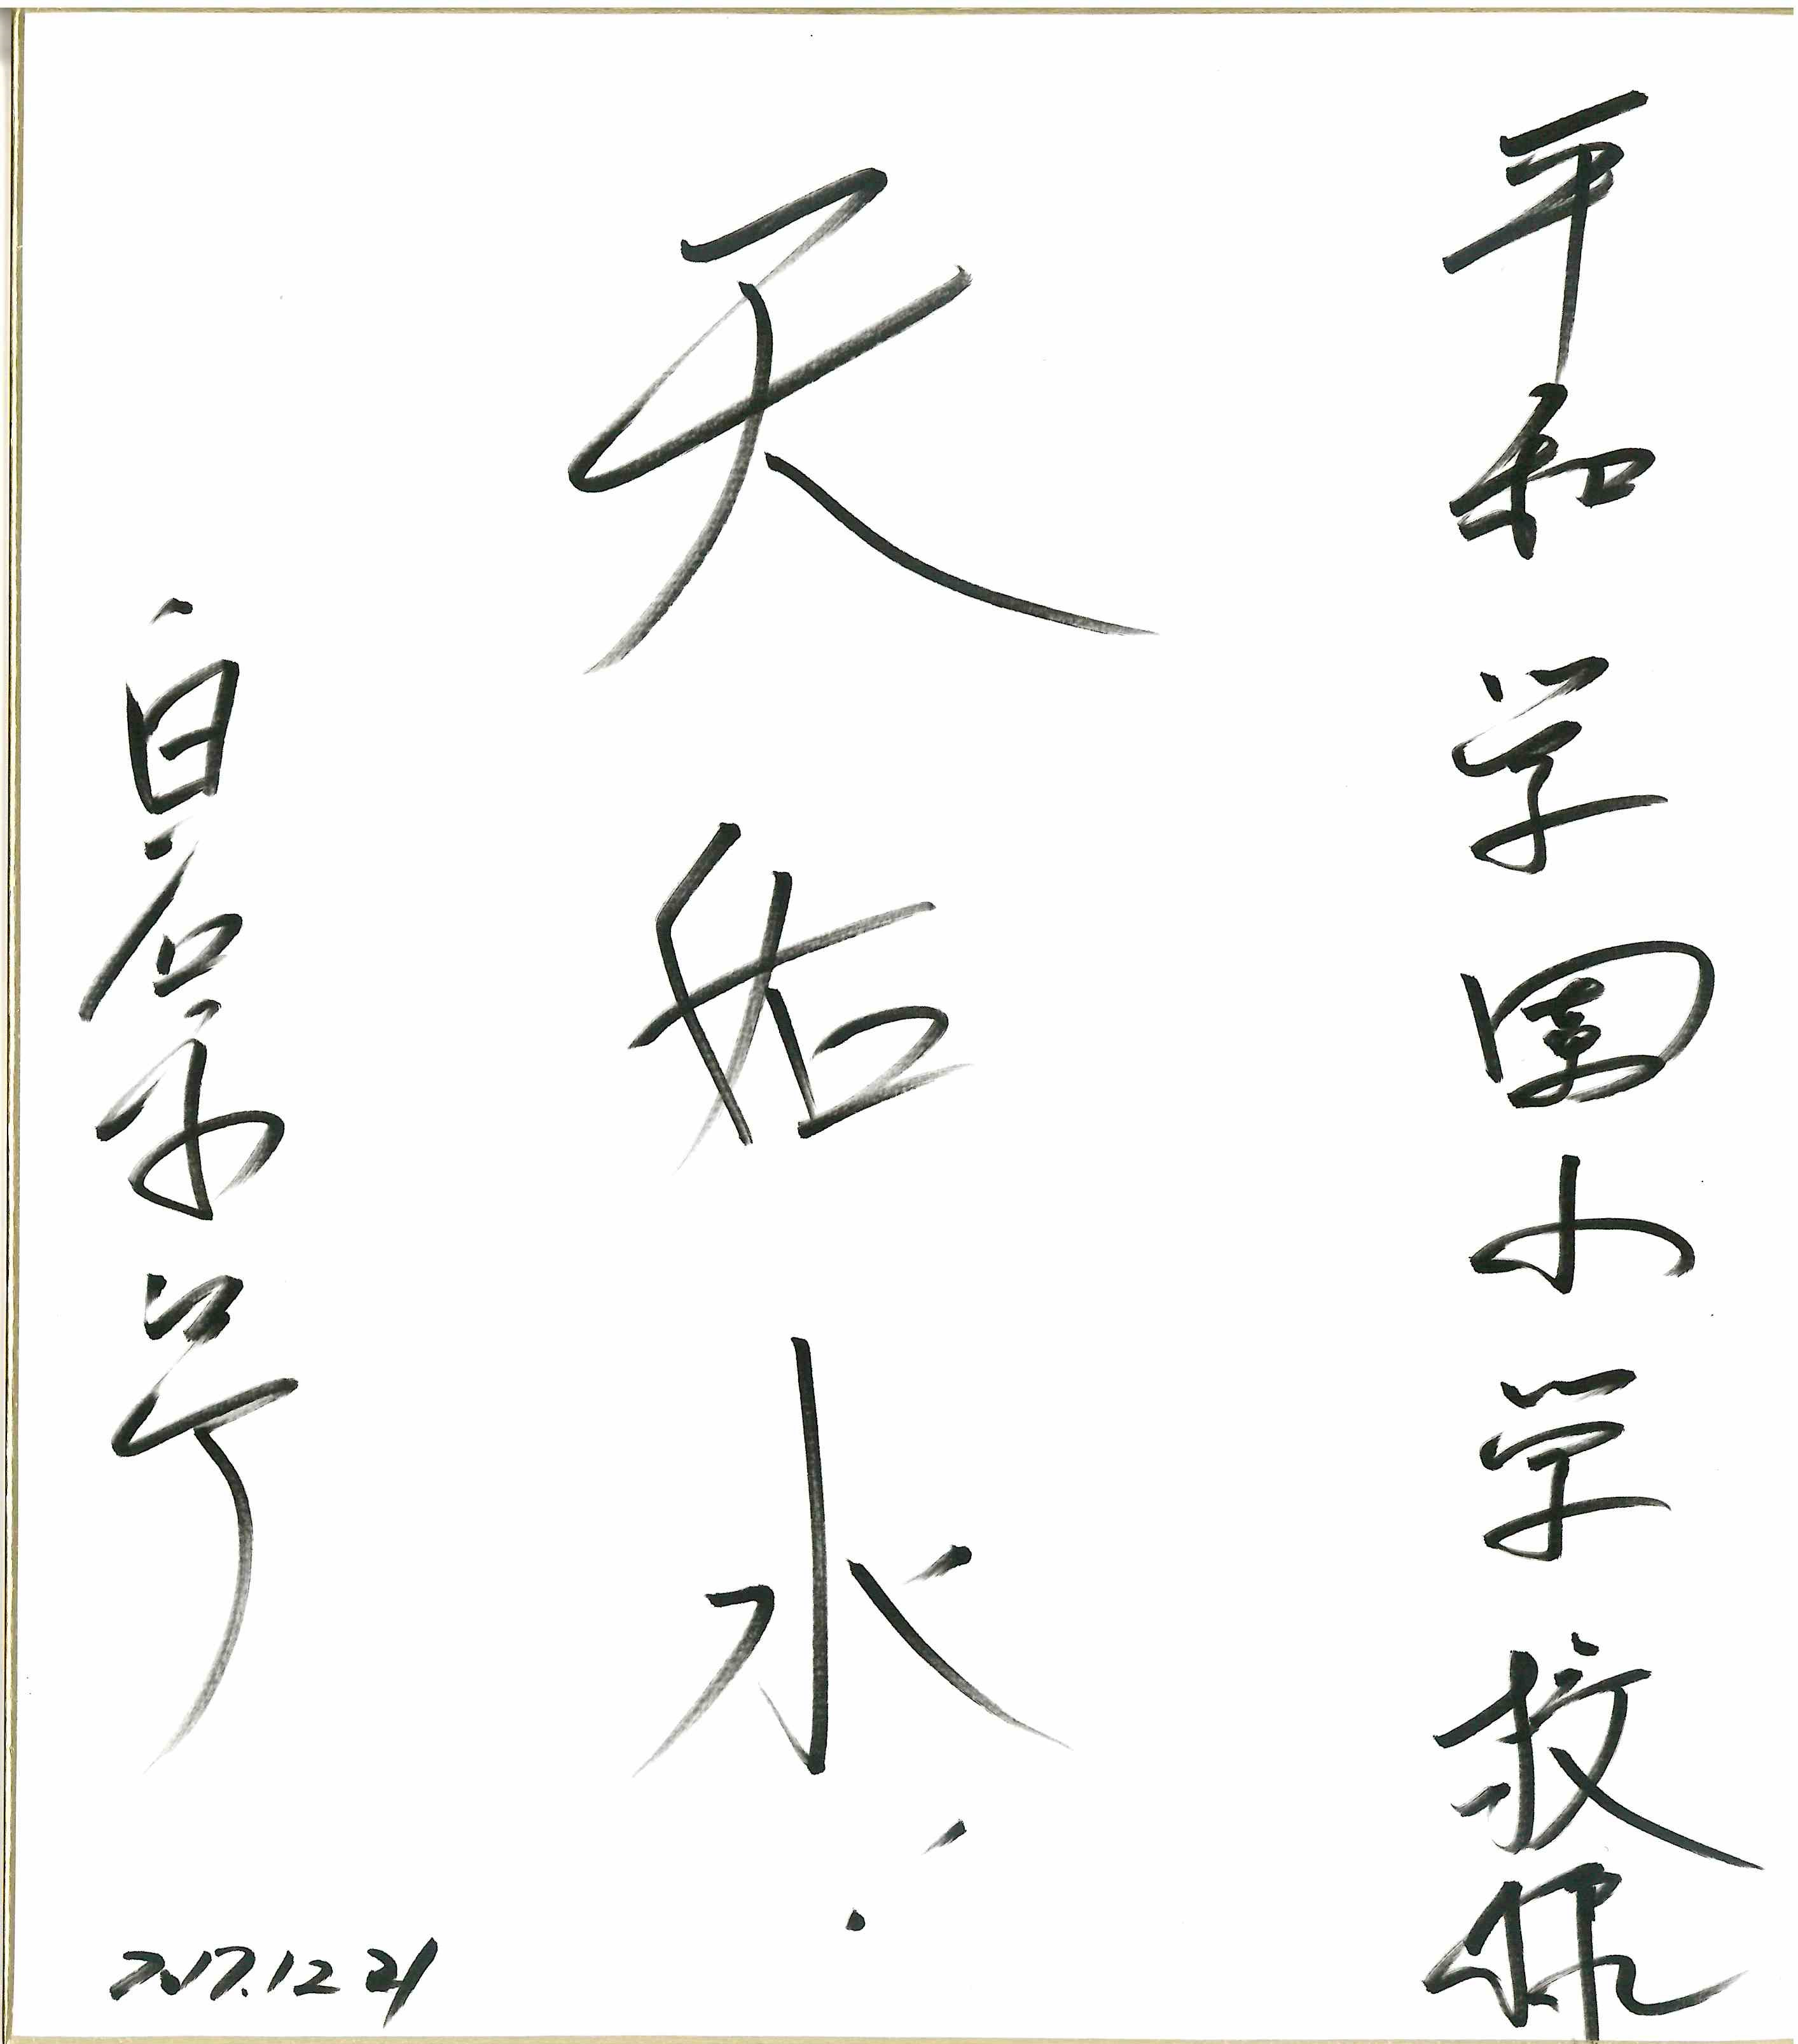 平和学園小学校様
天如水
白石
2017.12.21